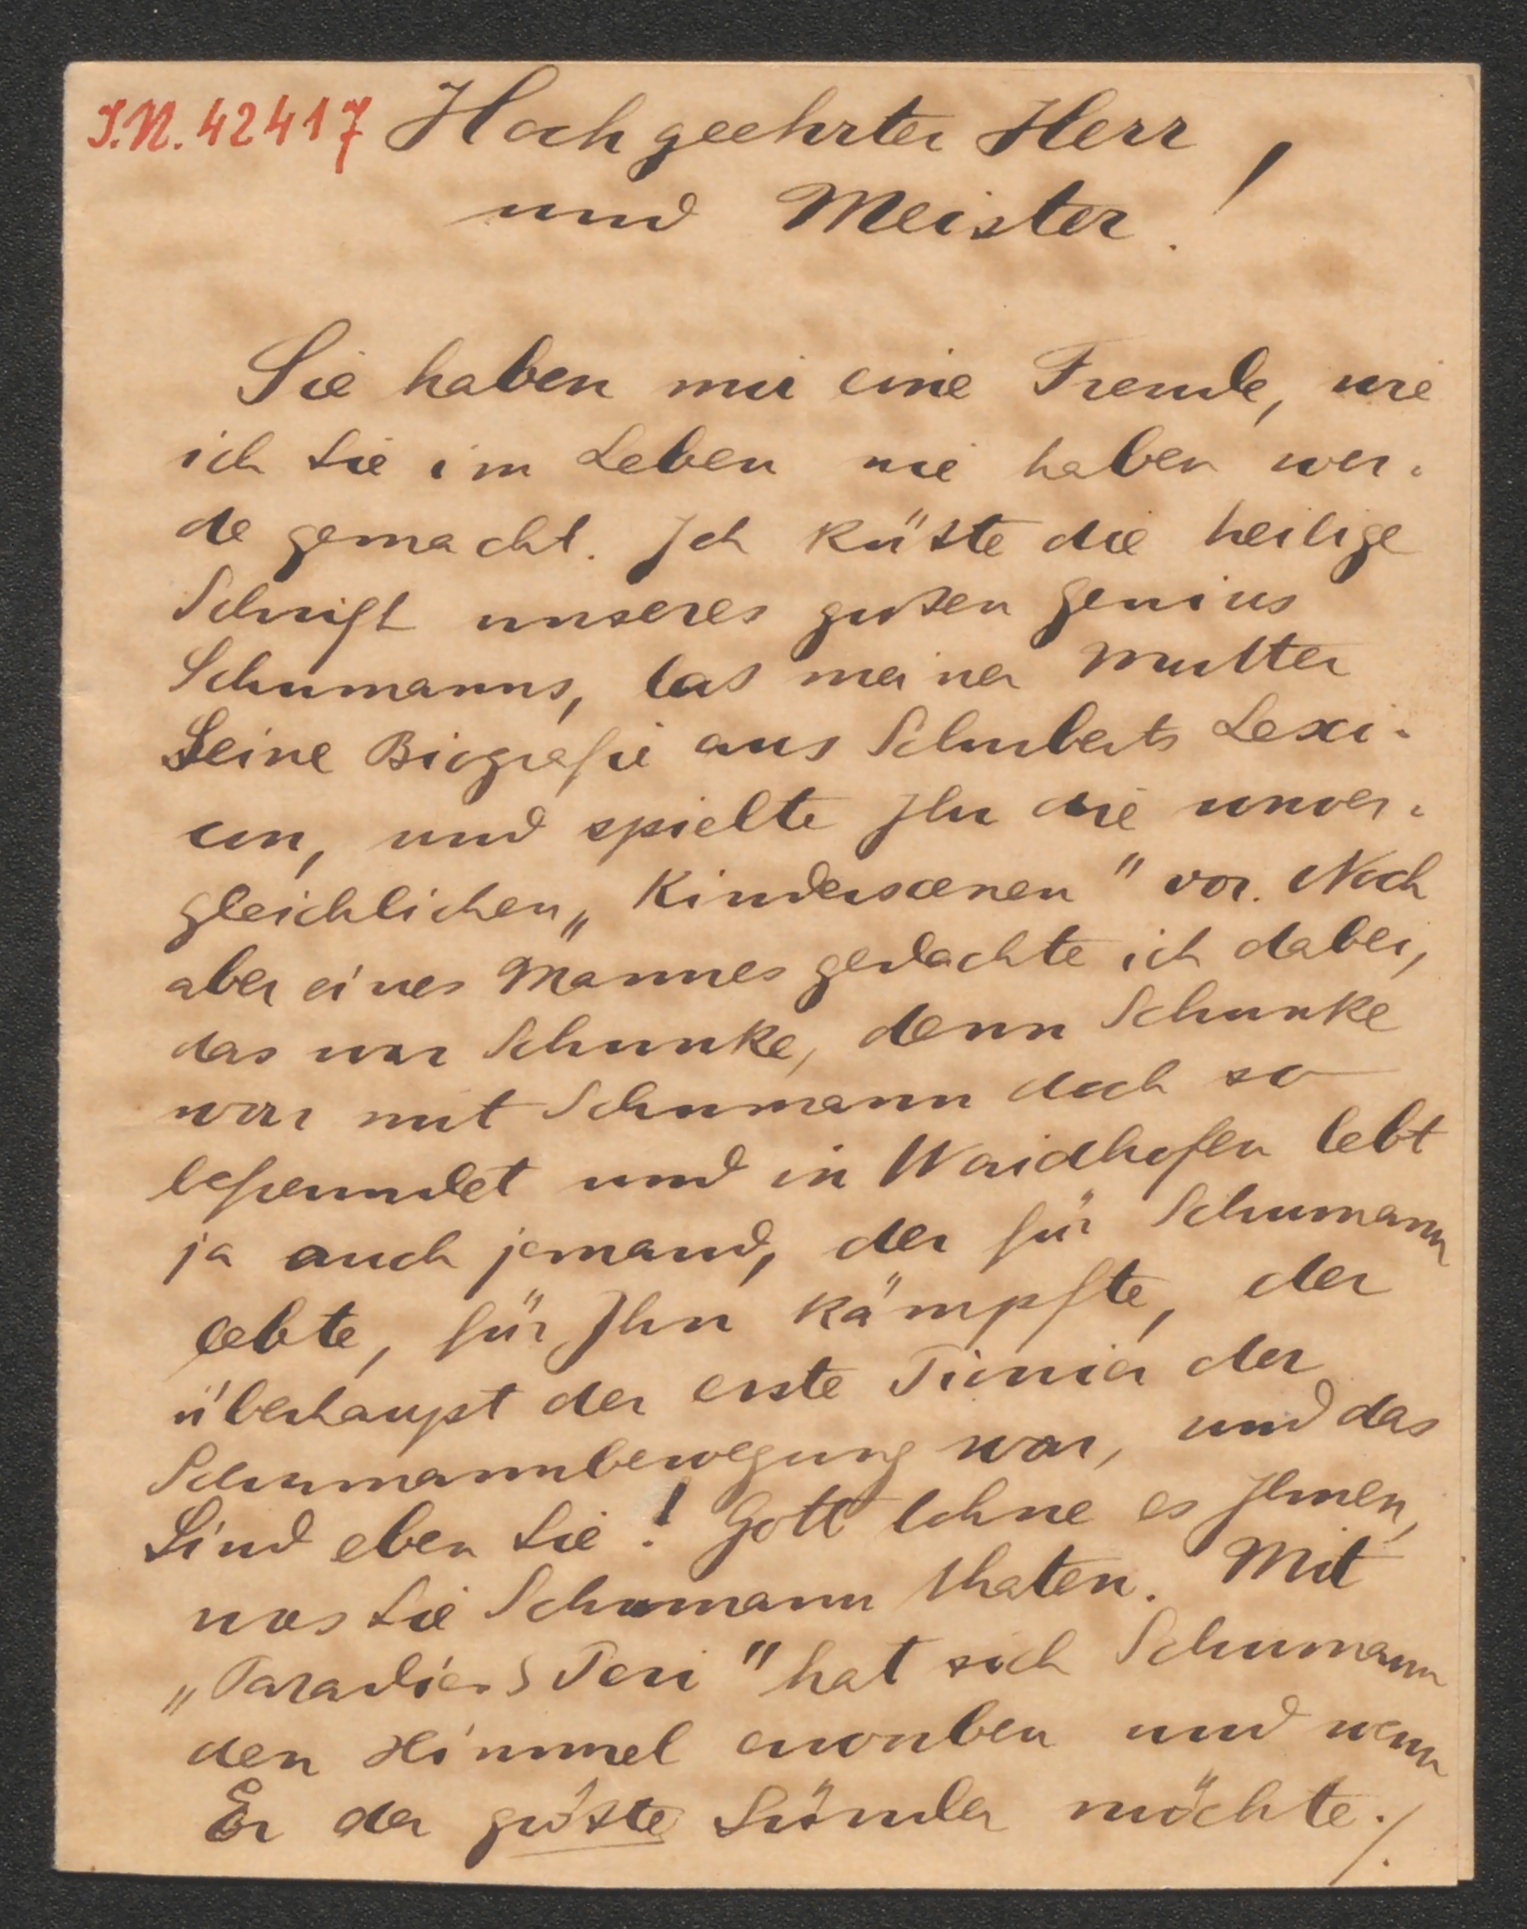 I.N. 42417 Hochgeehrter Herr
und Meister!
Sie haben mir eine Freude, wie
ich Sie im Leben nie haben wer-
de gemacht. Ich küßte die heilige
Schrift unseres großen Genius
Schumanns, las meiner Mutter
Seine Biografie aus Schuberts Lexi-
con, und spielte Ihr die unver-
gleichlichen „Kinderscenen" vor. Noch
aber eines Mannes gedachte ich dabei,
das war Schunke, denn Schunke
war mit Schumann doch so
befreundet und in Waidhofen lebt
ja auch jemand, der für Schumann
lebte, für Ihn kämpfte, der
überhaupt der erste Pionier der
Schumannbewegung war, und das
Sind eben Sie! Gott lohne es Ihnen,
was Sie Schumann thaten. Mit
„Paradies & Peri" hat sich Schumann
den Himmel erworben und wenn
Er der größte Sünder möchte./.